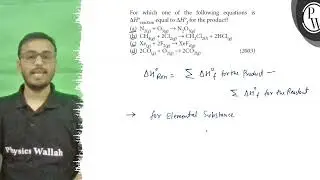 For which one of the following equations is
ΔH°reaction equal to ΔH°f for the product?
(a) N2(g) + O3(g) → N2O3(g)
(b) CH4(g) + 2Cl2(g) → CH2Cl2(l) + 2HCl(g)
(c) Xe(g) + 2F2(g) → XeF4(g)
(d) 2CO(g) + O2(g) → 2CO2(g) (2003)
ΔH°Rxn = Σ ΔH°f for the Product –
Σ ΔH°f for the Reactant
→ for Elemental Substance
Physics Wallah
PW